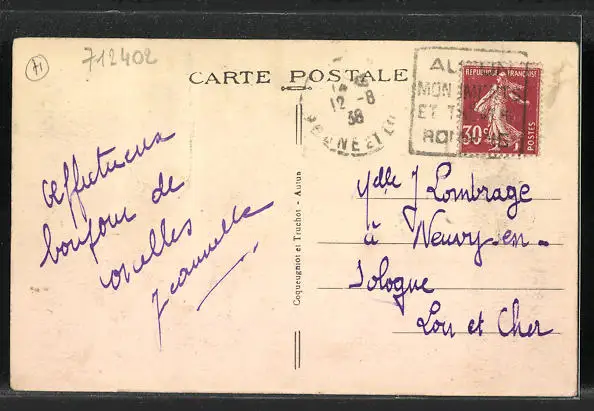 71
712402
CARTE POSTALE
12-8
38
AUTUN
MONUMENTS
ET
RÉPUBLIQUE FRANÇAISE
30c
POSTES
Affectueux
bonjour de
Jeannette
Coqueugniot et Truchot - Autun
Mdlle J Lombrage
à Neuvy-en-
Sologne
Loir et Cher